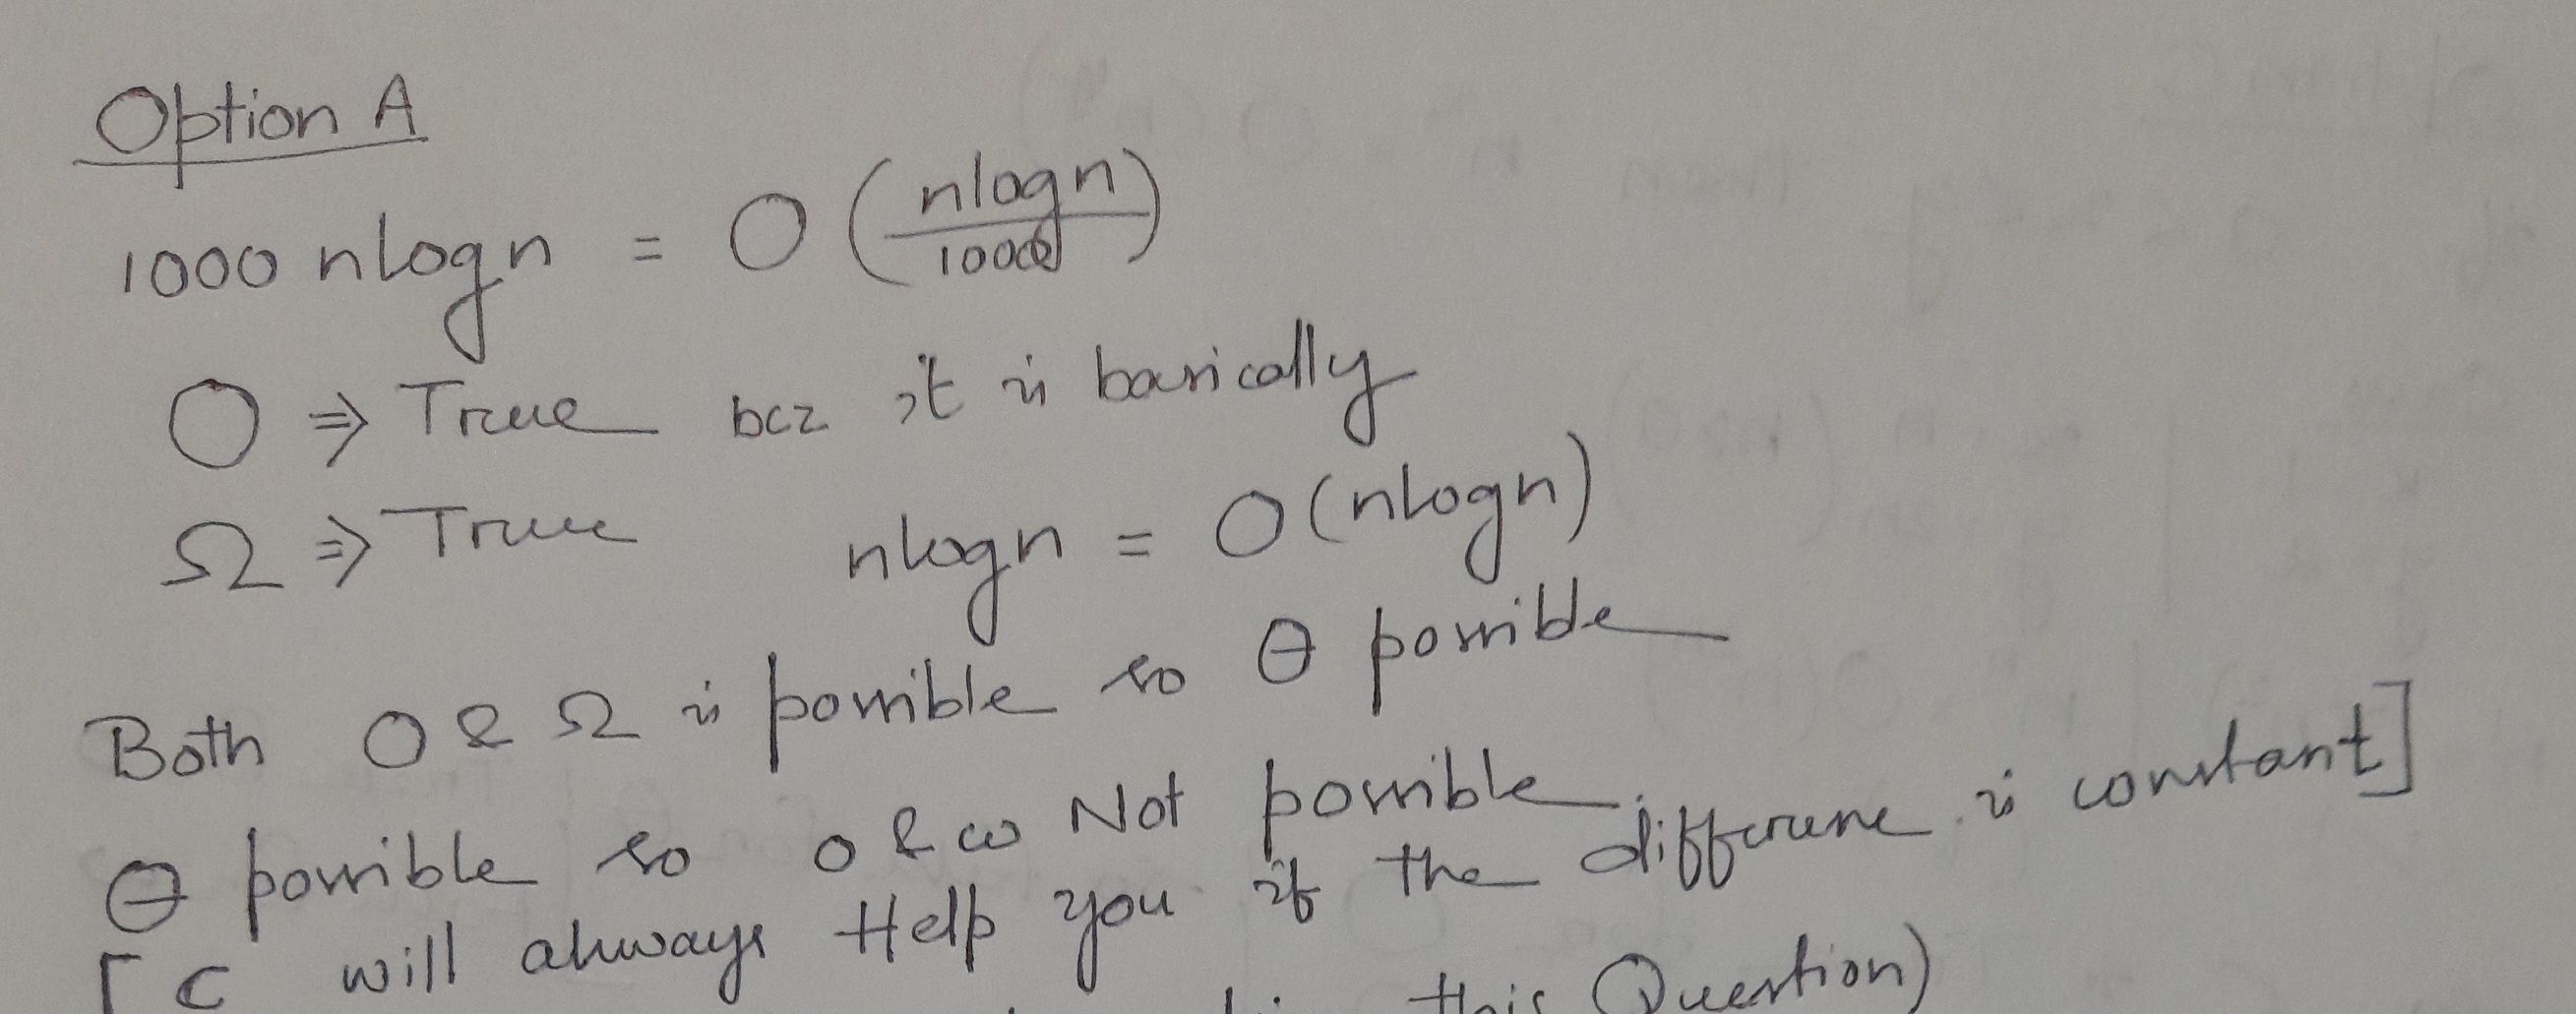 Option A
1000 nlogn = O (nlogn / 1000)
O ⇒ True bcz it is basically
Ω ⇒ True nlogn = O(nlogn)
Both O & Ω is possible so θ possible
θ possible so o & ω Not possible.
[C will always Help you if the difference is constant]
this Question)